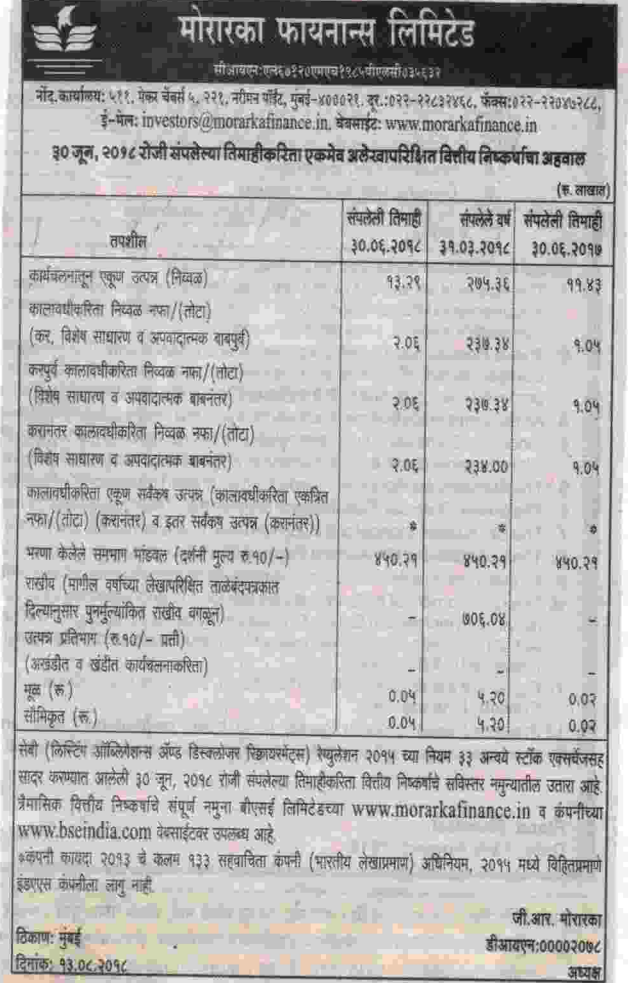 मोरारका फायनान्स लिमिटेड
सीआयएन:एल६७१२०एमएच१९८५पीएलसी०३५६३२
नोंद.कार्यालय: ५११, मेकर चेंबर्स ५, २२१, नरीमन पॉईंट, मुंबई-४०००२१. दूर.:०२२-२२८३२४६८, फॅक्स:०२२-२२०४७२८८,
ई-मेल: investors@morarkafinance.in, वेबसाईट: www.morarkafinance.in
३० जून, २०१८ रोजी संपलेल्या तिमाहीकरिता एकमेव अलेखापरिक्षित वित्तीय निष्कर्षांचा अहवाल
(रु. लाखात)
तपशील संपलेली तिमाही ३०.०६.२०१८ संपलेले वर्ष ३१.०३.२०१८ संपलेली तिमाही ३०.०६.२०१७
कार्यचलनातून एकूण उत्पन्न (निव्वळ) १३.२९ २७५.३६ ११.४३
कालावधीकरिता निव्वळ नफा/(तोटा)
(कर, विशेष साधारण व अपवादात्मक बाबपुर्व) २.०६ २३७.३४ १.०५
करपुर्व कालावधीकरिता निव्वळ नफा/(तोटा)
(विशेष साधारण व अपवादात्मक बाबनंतर) २.०६ २३७.३४ १.०५
करानंतर कालावधीकरिता निव्वळ नफा/(तोटा)
(विशेष साधारण व अपवादात्मक बाबनंतर) २.०६ २३४.०० १.०५
कालावधीकरिता एकूण सर्वंकष उत्पन्न (कालावधीकरिता एकत्रित
नफा/(तोटा) (करानंतर) व इतर सर्वंकष उत्पन्न (करानंतर)) * * *
भरणा केलेले समभाग भांडवल (दर्शनी मुल्य रु.१०/-) ४५०.२१ ४५०.२१ ४५०.२१
राखीव (मागील वर्षाच्या लेखापरिक्षित ताळेबंदपत्रकात
दिल्यानुसार पुनर्मुल्यांकित राखीव वगळून) – ७०६.०४ –
उत्पन्न प्रतिभाग (रु.१०/- प्रती)
(अखंडीत व खंडीत कार्यचलनाकरिता) – – –
मूळ (रु.) ०.०५ ५.२० ०.०२
सौमिकृत (रु.) ०.०५ ५.२० ०.०२
सेबी (लिस्टिंग ऑब्लिगेशन्स ॲण्ड डिस्क्लोजर रिक्वायरमेंट्स) रेग्युलेशन २०१५ च्या नियम ३३ अन्वये स्टॉक एक्सचेंजसह
सादर करण्यात आलेली ३० जून, २०१८ रोजी संपलेल्या तिमाहीकरिता वित्तीय निष्कर्षाचे सविस्तर नमुन्यातील उतारा आहे.
त्रैमासिक वित्तीय निष्कर्षाचे संपूर्ण नमुना बीएसई लिमिटेडच्या www.morarkafinance.in व कंपनीच्या
www.bseindia.com वेबसाईटवर उपलब्ध आहे.
*कंपनी कायदा २०१३ चे कलम १३३ सहवाचिता कंपनी (भारतीय लेखाप्रमाण) अधिनियम, २०१५ मध्ये विहितप्रमाणे
इंडएएस कंपनीला लागु नाही.
जी.आर. मोरारका
ठिकाण: मुंबई डीआयएन:००००२०७८
दिनांक: १३.०८.२०१८ अध्यक्ष